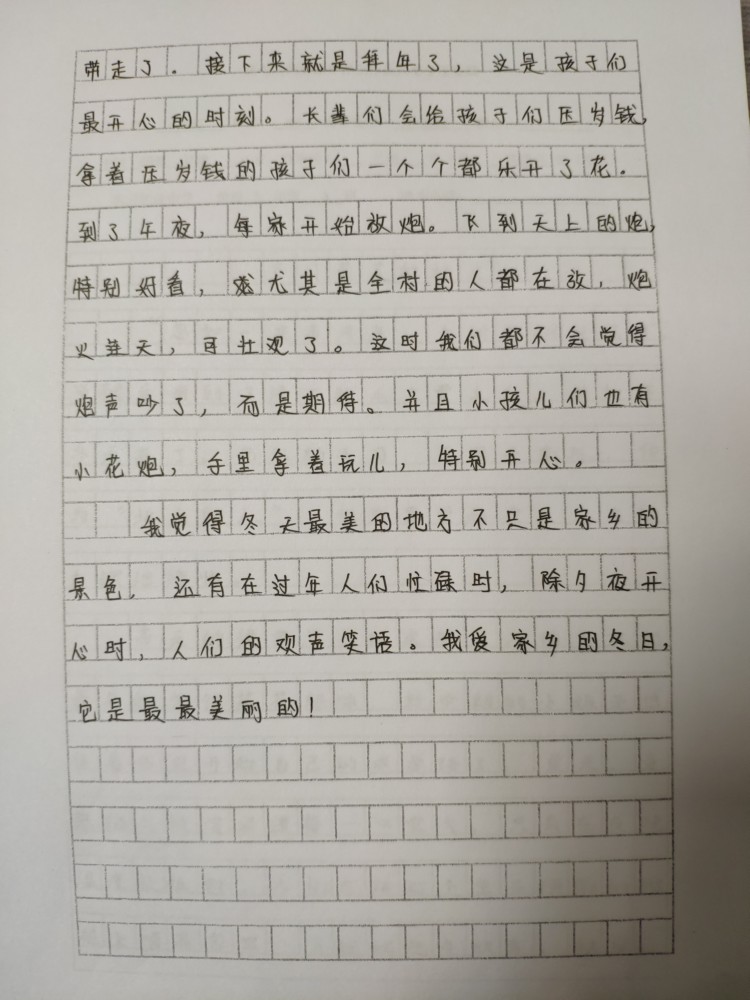 带走了.接下来就是拜年了,这是孩子们
最开心的时刻。长辈们会给孩子们压岁钱,
拿着压岁钱的孩子们一个个都乐开了花.
到了年夜,每家开始放炮。飞到天上的炮,
特别好看,尤其是全村的人都在放,炮
火连天,可壮观了。这时我们都不会觉得
炮声吵了,而是期待。并且小孩儿们也有
小花炮,手里拿着玩儿,特别开心。
我觉得冬天最美的地方不只是家乡的
景色,还有在过年人们忙碌时,除夕夜开
心时,人们的欢声笑语。我爱家乡的冬日,
它是最最美丽的!